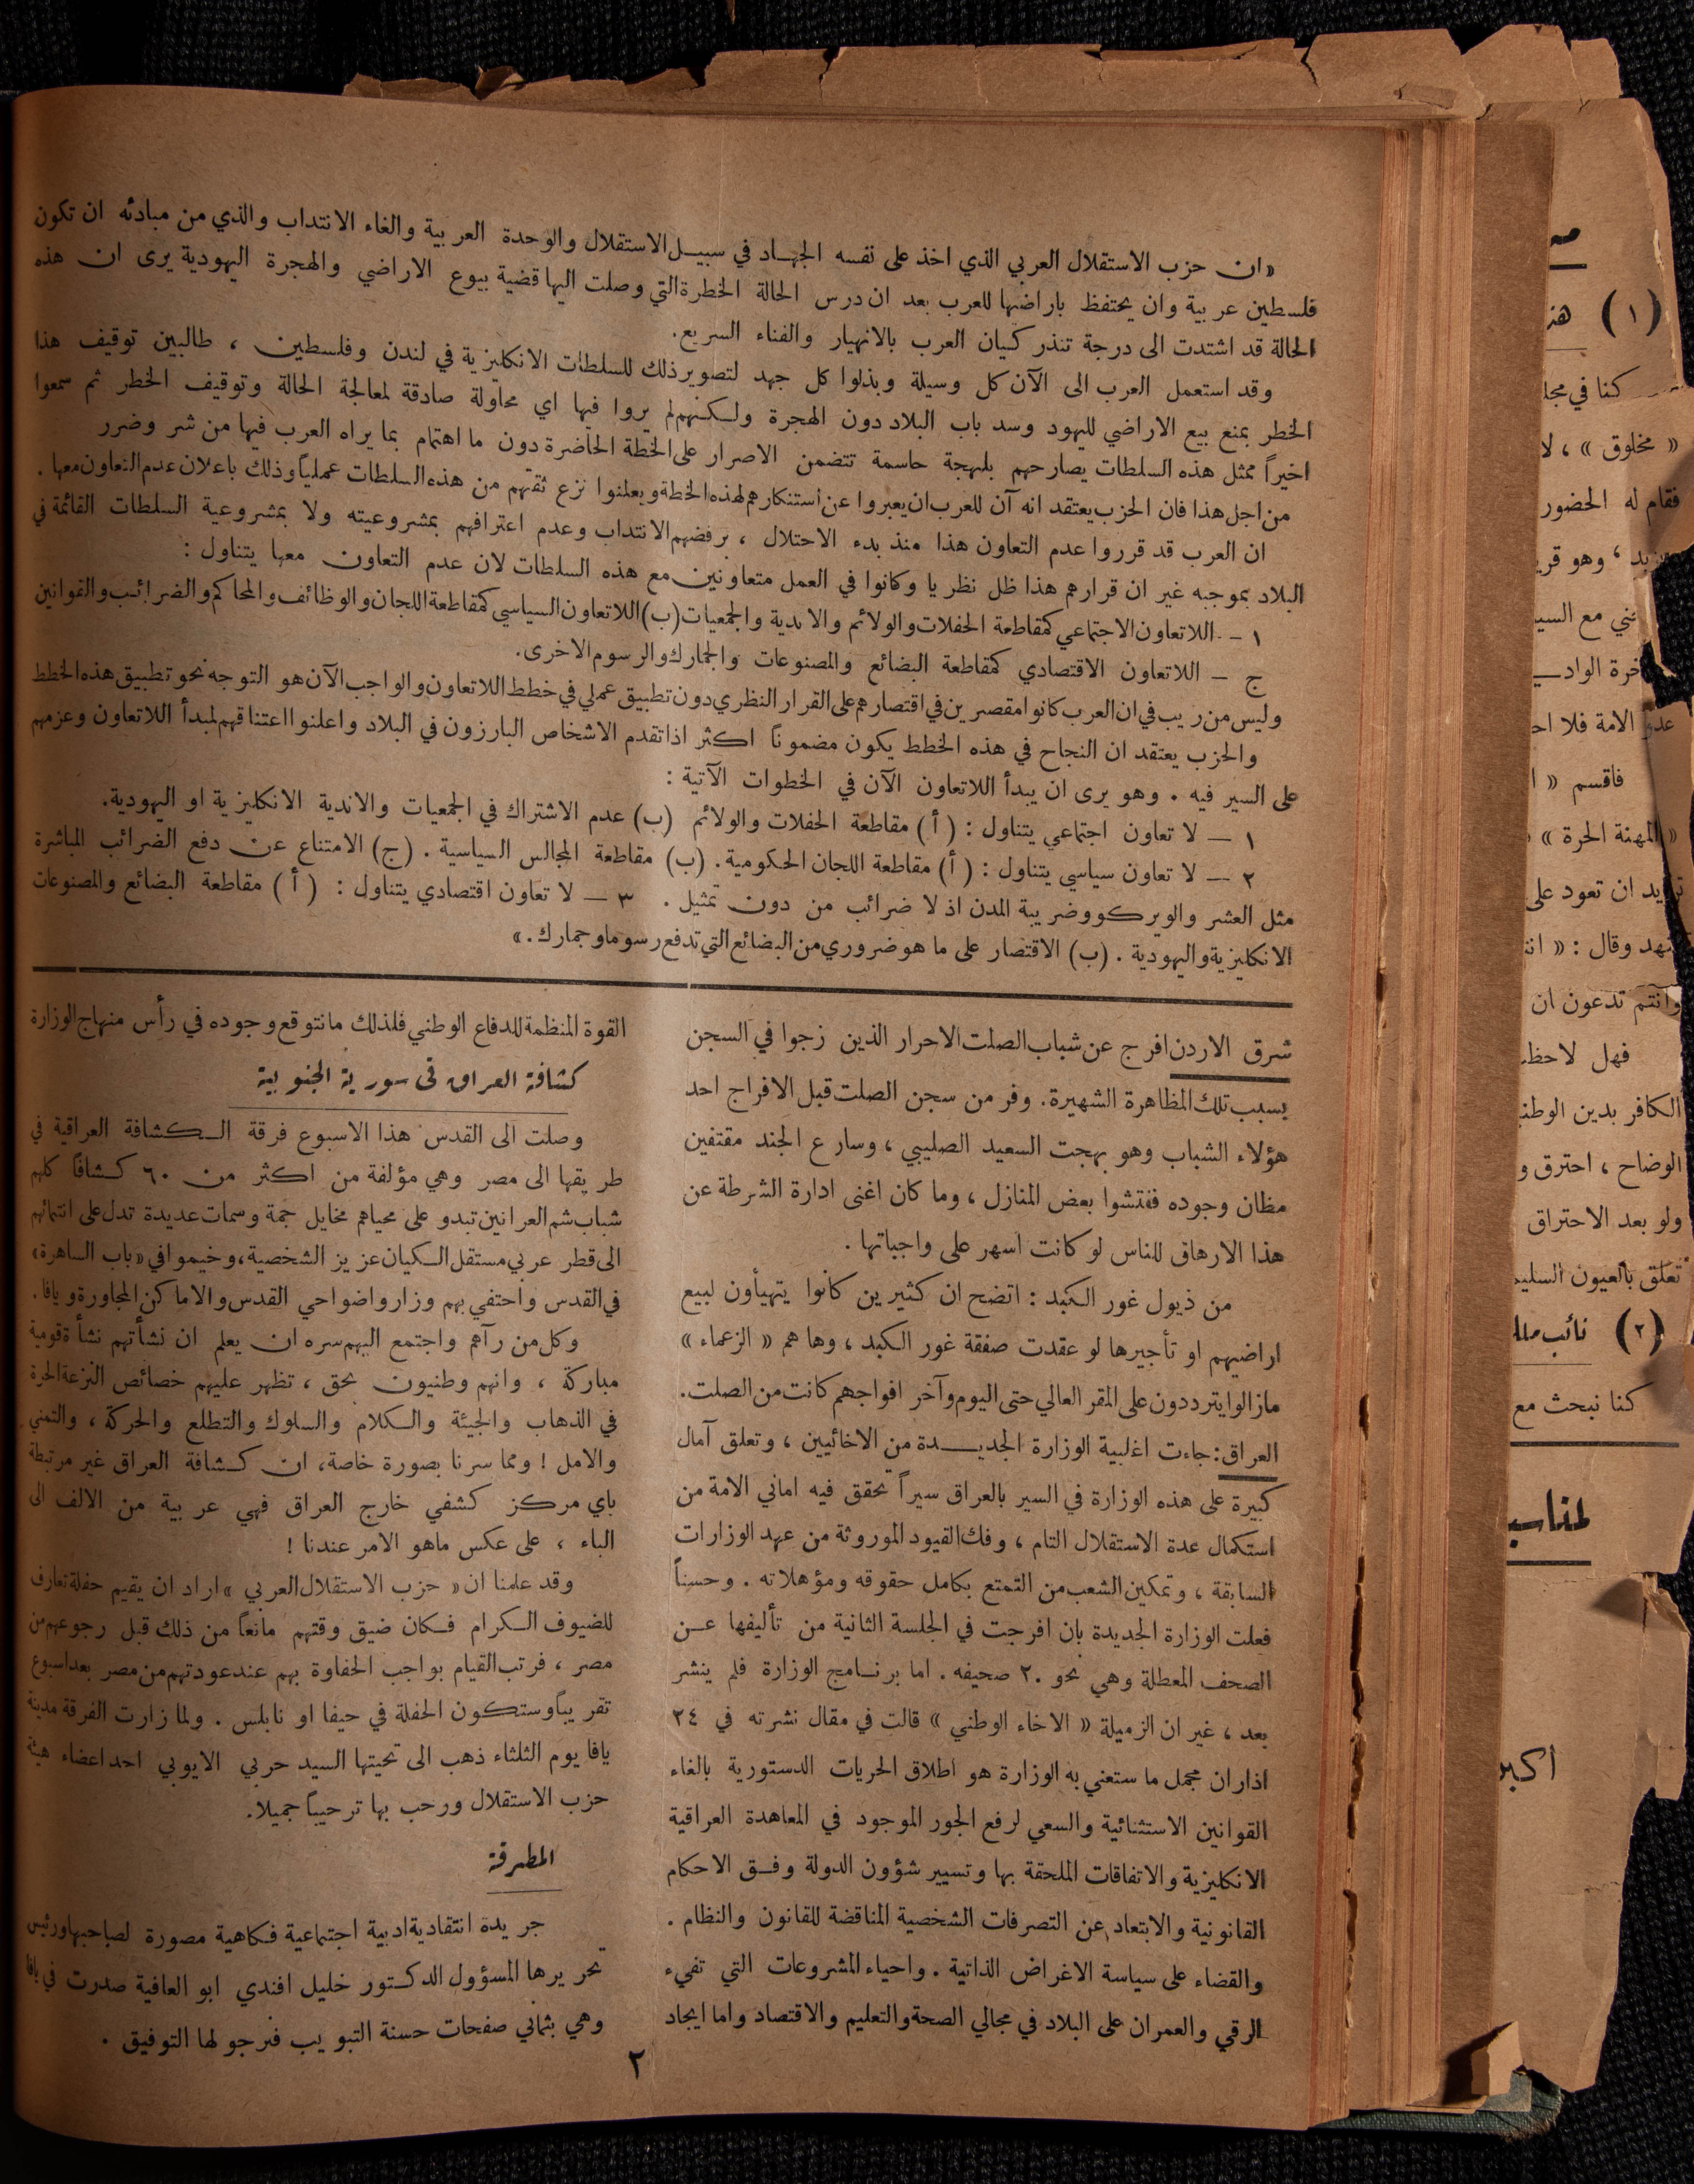 «ان حزب الاستقلال العربي الذي اخذ على نفسه الجهاد في سبيل الاستقلال والوحدة العربية والغاء الانتداب والذي من مبادئه ان تكون
فلسطين عربية وان يحتفظ باراضها للعرب بعد ان درس الحالة الخطرة التي وصلت اليها قضية بيوع الاراضي والهجرة اليهودية يرى ان هذه
الحالة قد اشتدت الى درجة تنذر كيان العرب بالانهيار والفناء السريع.
وقد استعمل العرب الى الآن كل وسيلة وبذلوا كل جهد لتصوير ذلك للسلطات الانكليزية في لندن وفلسطين ، طالبين توقيف هذا
الخطر بمنع بيع الاراضي لليهود وسد باب البلاد دون الهجرة ولكنهم لم يروا فيها اي محاولة صادقة لمعالجة الحالة وتوقيف الخطر ثم سمعوا
اخيراً ممثل هذه السلطات يصارحهم بلهجة حاسمة تتضمن الاصرار على الخطة الحاضرة دون ما اهتمام بما يراه العرب فيها من شر وضرر
من اجل هذا فان الحزب يعتقد انه آن للعرب ان يعبروا عن استنكارهم لهذه الخطة ويعلنوا نزع ثقتهم من هذه السلطات عملياً وذلك باعلان عدم التعاون معها .
ان العرب قد قرروا عدم التعاون هذا منذ بدء الاحتلال ، برفضهم الانتداب وعدم اعترافهم بمشروعيته ولا بمشروعية السلطات القائمة في
البلاد بموجبه غير ان قرارهم هذا ظل نظريا وكانوا في العمل متعاونين مع هذه السلطات لان عدم التعاون معها يتناول :
١ - اللاتعاون الاجتماعي كمقاطعة الحفلات والولائم والاندية والجمعيات (ب) اللاتعاون السياسي كمقاطعة اللجان والوظائف والمحاكم والضرائب والقوانين
ج - اللاتعاون الاقتصادي كمقاطعة البضائع والمصنوعات والجمارك والرسوم الاخرى.
وليس من ريب في ان العرب كانوا مقصرين في اقتصارهم على القرار النظري دون تطبيق عملي في خطط اللاتعاون والواجب الآن هو التوجه نحو تطبيق هذه الخطط
والحزب يعتقد ان النجاح في هذه الخطط يكون مضموناً اكثر اذا تقدم الاشخاص البارزون في البلاد واعلنوا اعتناقهم لمبدأ اللاتعاون وعزمهم
على السير فيه . وهو يرى ان يبدأ اللاتعاون الآن في الخطوات الآتية :
١ - لا تعاون اجتماعي يتناول : (أ) مقاطعة الحفلات والولائم (ب) عدم الاشتراك في الجمعيات والاندية الانكليزية او اليهودية.
٢ - لا تعاون سياسي يتناول : (أ) مقاطعة اللجان الحكومية. (ب) مقاطعة المجالس السياسية . (ج) الامتناع عن دفع الضرائب المباشرة
مثل العشر والويركو وضريبة المدن اذ لا ضرائب من دون تمثيل . ٣ - لا تعاون اقتصادي يتناول : (أ) مقاطعة البضائع والمصنوعات
الانكليزية واليهودية . (ب) الاقتصار على ما هو ضروري من البضائع التي تدفع رسوما وجمارك .»
شرق الاردن افرج عن شباب الصلت الاحرار الذين زجوا في السجن
بسبب تلك المظاهرة الشهيرة. وفر من سجن الصلت قبل الافراج احد
هؤلاء الشباب وهو بهجت السعيد الصليبي ، وسارع الجند مقتفين
مظان وجوده ففتشوا بعض المنازل ، وما كان اغنى ادارة الشرطة عن
هذا الارهاق للناس لو كانت اسهر على واجباتها .
من ذيول غور الكبد : اتضح ان كثيرين كانوا يتهيأون لبيع
اراضيهم او تأجيرها لو عقدت صفقة غور الكبد ، وها هم « الزعماء »
مازالوا يترددون على المقر العالي حتى اليوم وآخر افواجهم كانت من الصلت.
العراق : جاءت اغلبية الوزارة الجديدة من الاخائيين ، وتعلق آمال
كبيرة على هذه الوزارة في السير بالعراق سيراً تحقق فيه اماني الامة من
استكمال عدة الاستقلال التام ، وفك القيود الموروثة من عهد الوزارات
السابقة ، وتمكين الشعب من التمتع بكامل حقوقه ومؤهلاته . وحسناً
فعلت الوزارة الجديدة بان افرجت في الجلسة الثانية من تأليفها عن
الصحف المعطلة وهي نحو ٢٠ صحيفه . اما برنامج الوزارة فلم ينشر
بعد ، غير ان الزميلة « الاخاء الوطني » قالت في مقال نشرته في ٢٤
اذار ان مجمل ما ستعني به الوزارة هو اطلاق الحريات الدستورية بالغاء
القوانين الاستثنائية والسعي لرفع الجور الموجود في المعاهدة العراقية
الانكليزية والاتفاقات الملحقة بها وتسيير شؤون الدولة وفق الاحكام
القانونية والابتعاد عن التصرفات الشخصية المناقضة للقانون والنظام .
والقضاء على سياسة الاغراض الذاتية . واحياء المشروعات التي تفيء
الرقي والعمران على البلاد في مجالي الصحة والتعليم والاقتصاد واما ايجاد
القوة المنظمة للدفاع الوطني فلذلك ما نتوقع وجوده في رأس منهاج الوزارة
كشافة العراق في سورية الجنوبية
وصلت الى القدس هذا الاسبوع فرقة الكشافة العراقية في
طريقها الى مصر وهي مؤلفة من اكثر من ٦٠ كشافاً كلهم
شباب شم العرانين تبدو على محياهم مخايل جمة وسمات عديدة تدل على انتمائهم
الى قطر عربي مستقل الكيان عزيز الشخصية ، وخيموا في «باب الساهرة»
في القدس واحتفي بهم وزاروا ضواحي القدس والاماكن المجاورة ويافا .
وكل من رآهم واجتمع اليهم سره ان يعلم ان نشأتهم نشأة قومية
مباركة ، وانهم وطنيون بحق ، تظهر عليهم خصائص النزعة الحرة
في الذهاب والجيئة والكلام والسلوك والتطلع والحركة ، والتمني
والامل ! ومما سرنا بصورة خاصة ، ان كشافة العراق غير مرتبطة
باي مركز كشفي خارج العراق فهي عربية من الالف الى
الباء ، على عكس ماهو الامر عندنا !
وقد علمنا ان « حزب الاستقلال العربي » اراد ان يقيم حفلة تعارف
للضيوف الكرام فكان ضيق وقتهم مانعاً من ذلك قبل رجوعهم من
مصر ، فرتب القيام بواجب الحفاوة بهم عند عودتهم من مصر بعد اسبوع
تقريباً وستكون الحفلة في حيفا او نابلس . ولما زارت الفرقة مدينة
يافا يوم الثلثاء ذهب الى تحيتها السيد حربي الايوبي احد اعضاء هيئة
حزب الاستقلال ورحب بها ترحيباً جميلا.
المطرقة
جريدة انتقادية ادبية اجتماعية فكاهية مصورة لصاحبها ورئيس
تحريرها المسؤول الدكتور خليل افندي ابو العافية صدرت في يافا
وهي بثماني صفحات حسنة التبويب فنرجو لها التوفيق .
٢
(١) هذ
كنا في مجا
« مخلوق » ، لا
فقام له الحضور
وهو قري
ني مع السيد
آخرة الواد
عدو الامة فلا اح
فاقسم « ا
« المهنة الحرة »
تريد ان تعود على
وقال : « انت
وانتم تدعون ان
فهل لاحظ
الكافر بدين الوطن
الوضاح ، احترق و
ولو بعد الاحتراق
تعلق بالعيون السليم
(٢) نائب
كنا نبحث مع
لمناسب
أكبر